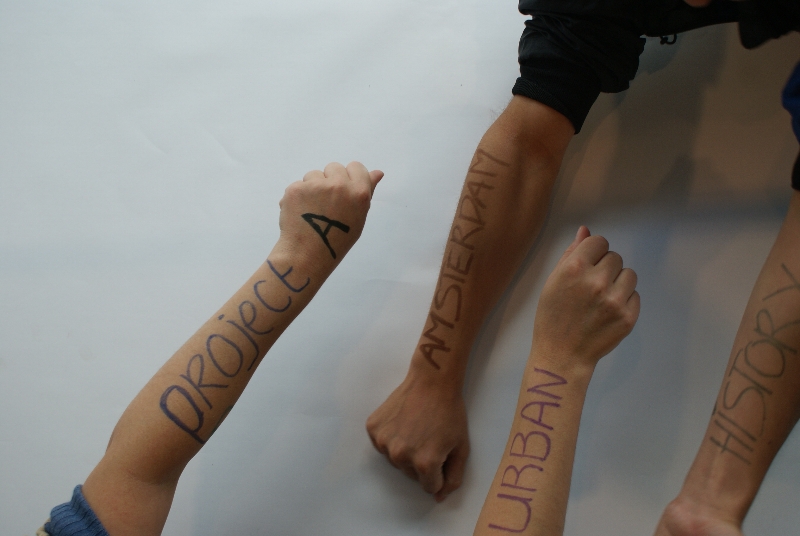 project A
AMSTERDAM
URBAN
HISTORY